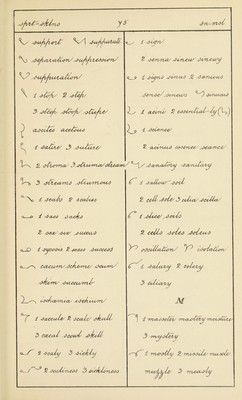 sprt-skltns 45 sn-mst
support suppurate
separation suppression
suppuration
1 stop 2 step
3 steep stoop stupe
ascites acetous
1 satire 3 suture
2 stroma 3 struma
3 streams strumous
1 scab 2 scabies
1 saw sucks
2 succus
1 sycosis 2 success
caecum scheme scum
skim succumb
ischaemia ischium
1 saccule 2 scale skull
3 caecal scowl skill
2 scaly 3 sickly
2 scaliness 3 sickliness
1 sign
2 senna sinew sinewy
1 signs sinus 2 sanious
sense sinews sinuous
1 acini 2 essential-ly
1 science
2 acinus essence seance
sanatory sanitary
1 sallow soil
2 cell sole 3 cilia
1 slice soils
2 cells soles soleus
oscillation isolation
1 salary 2 celery
3 ciliary
M
1 masseter mastery moisture
3 mystery
1 mostly 2 missile muscle
muzzle 3 measly